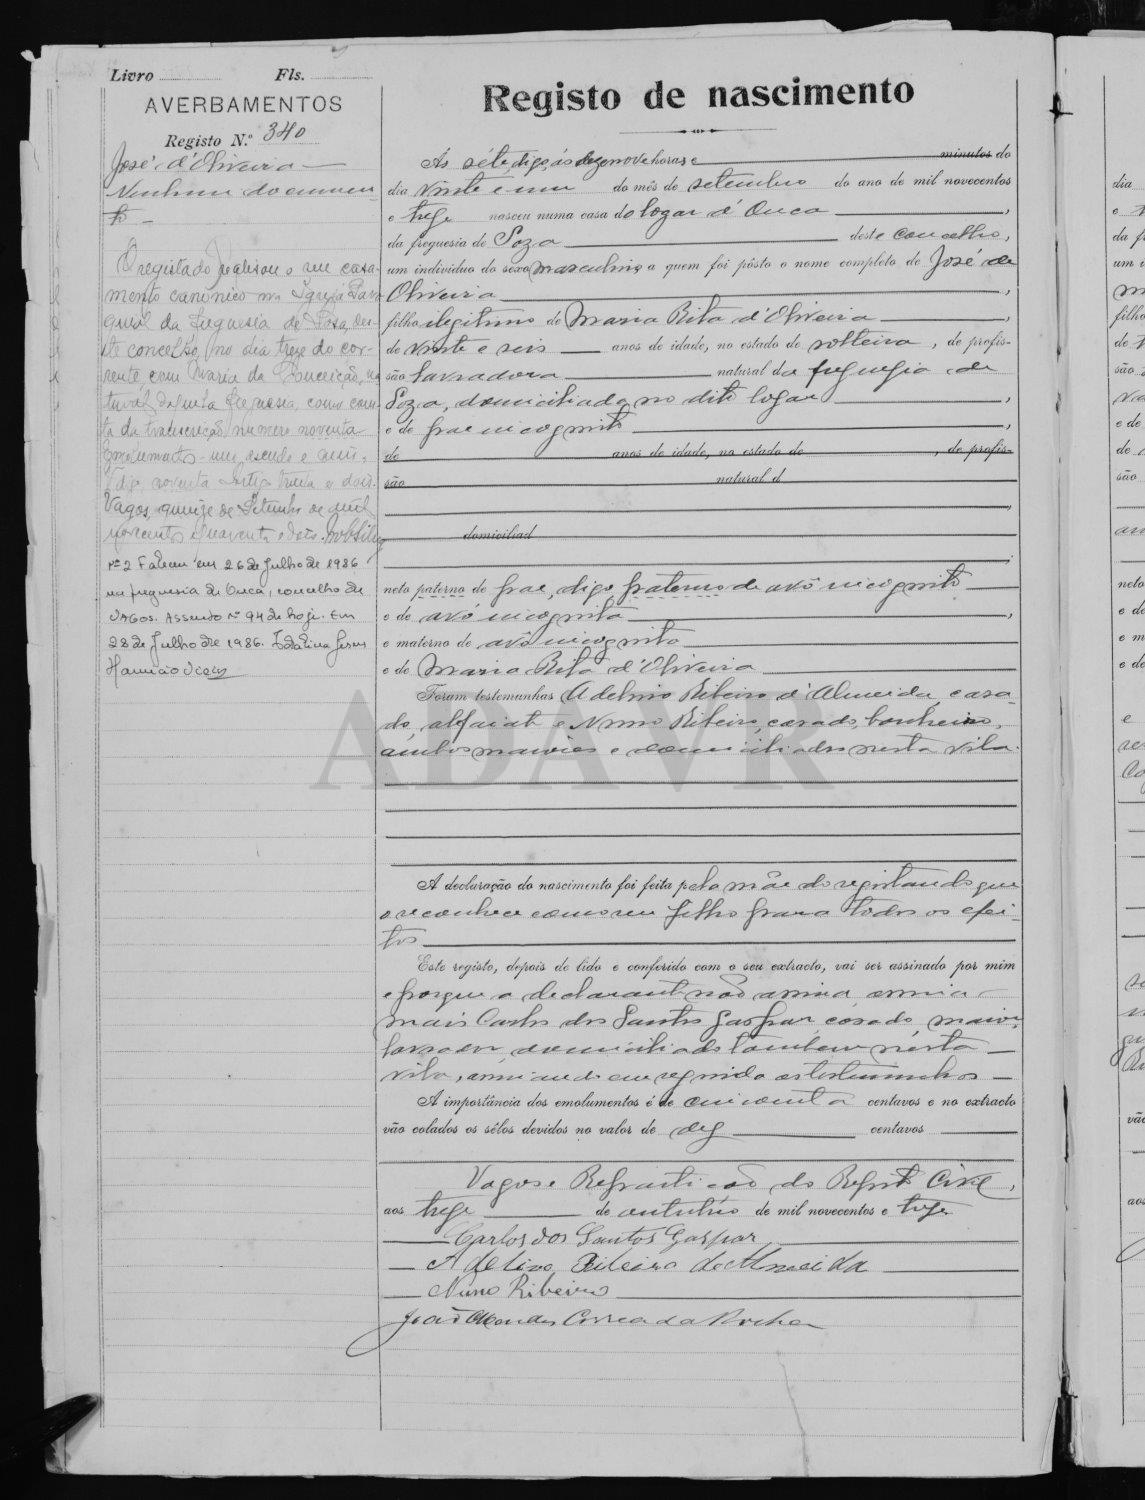 Livro Fls.
AVERBAMENTOS
Registo N.º 340
José d'Oliveira
Nenhum documen
to
O registado realisou o seu casa-
mento canónico na Igreja Paro
quial da freguesia de Soza, des-
te concelho, no dia treze do cor-
rente, com Maria da Conceição, na
tural daquela freguesia, como cons-
ta da transcrição numero noventa
Emolumentos um escudo e
noventa trinta e dois.
Vagos, quinze de Setembro de mil
novecentos quarenta e dois.
Nº 2 Faleceu em 26 de Julho de 1986
na freguesia de Ouca, concelho de
VAGOS. Assento Nº 94 de hoje. Em
28 de Julho de 1986.
Registo de nascimento
Ás séte, digo, ás dezenove horas e minutos do
dia vinte e um do mês de setembro do ano de mil novecentos
e treze nasceu numa casa do logar d'Ouca,
da freguesia de Soza deste concelho,
um individuo do sexo masculino a quem foi pôsto o nome completo de José de
Oliveira,
filho ilegitimo de Maria Rita d'Oliveira,
de vinte e seis anos de idade, no estado de solteira, de profis-
são lavradora natural da freguesia de
Soza, domiciliada no dito logar,
e de pae incognito
de anos de idade, no estado de, de profis-
são natural d
domiciliad
neto paterno de pae, digo, paterno de avô incognito
e de avó incognita,
e materno de avô incognito
e de Maria Rita d'Oliveira
Foram testemunhas Adelino Ribeiro d'Almeida, casa-
do, alfaiate e Nuno Ribeiro, casado, banheiro,
ambos maiores e domiciliados nesta vila.
A declaração do nascimento foi feita pela mãe do registando que
o reconhece como seu filho para todos os efei-
tos
Este registo, depois de lido e conferido com o seu extracto, vai ser assinado por mim
e porque a declarante não assina, assina
mais Carlos dos Santos Gaspar, casado, maior,
lavrador, domiciliado tambem nésta
vila, assinando em seguida as testemunhas
A importância dos emolumentos é de cincoenta centavos e no extracto
vão colados os sêlos devidos no valor de dez centavos
Vagos e Repartição do Registo Civil,
aos treze de outubro de mil novecentos e treze
Carlos dos Santos Gaspar
Adelino Ribeiro de Almeida
Nuno Ribeiro
João Mendes Correa da Rocha
ADAVR